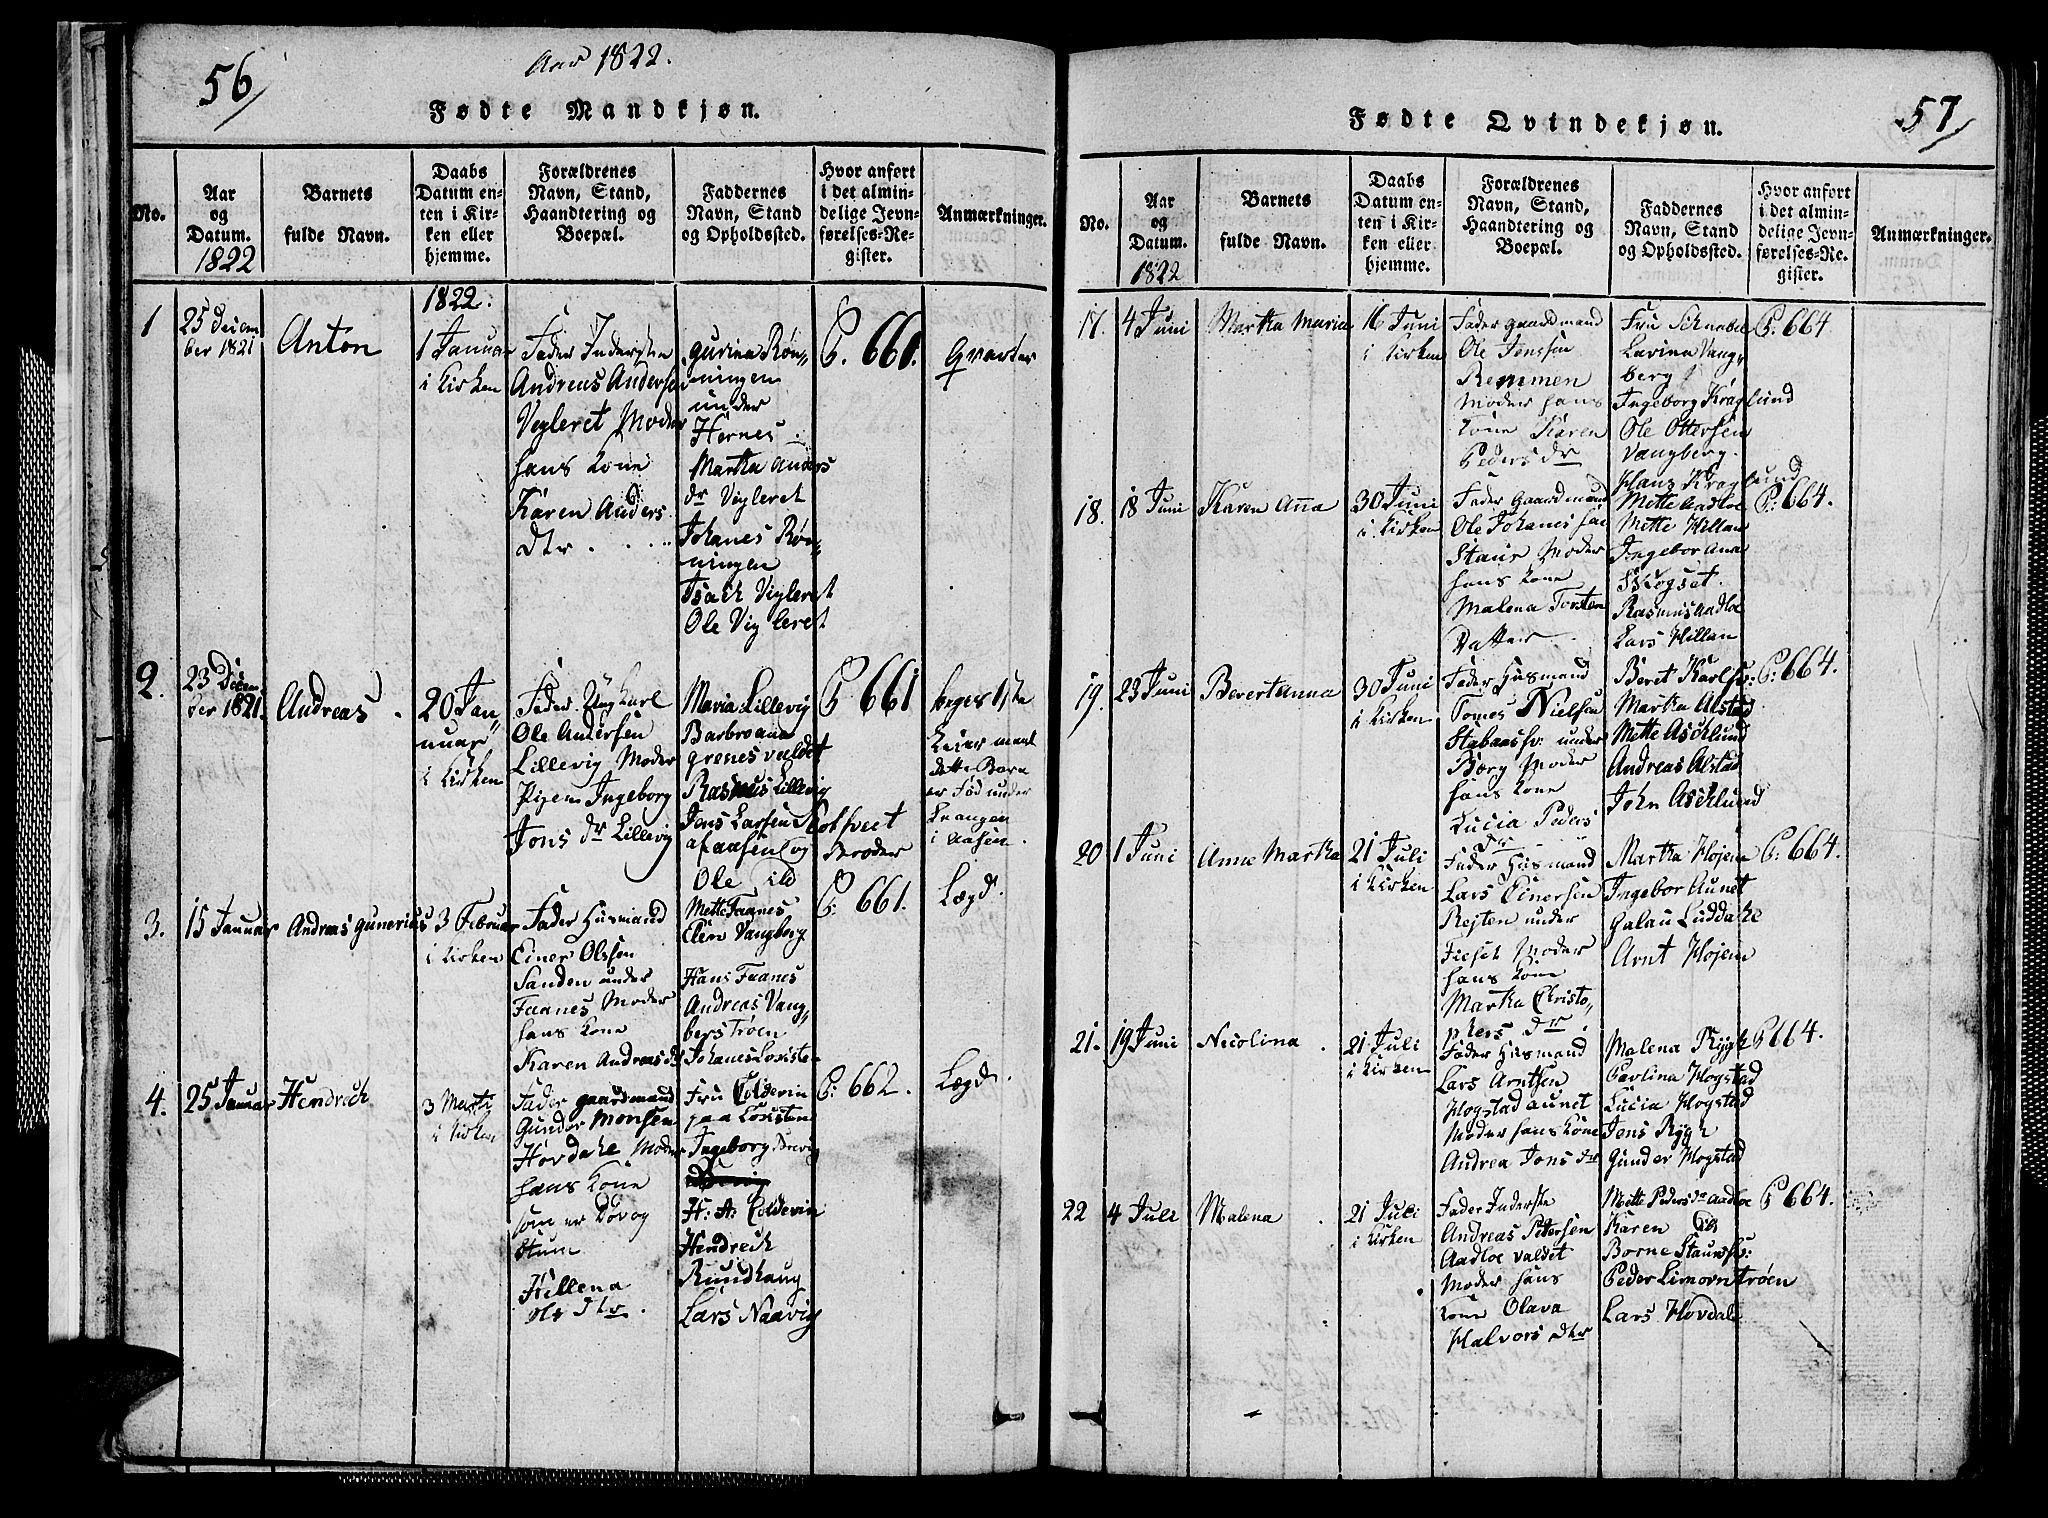 56/
Aar 1822.
Fødte Mandkjøn.
No.
Aar
og
Datum.
1822
Barnets
fulde Navn.
Daabs
Datum en-
ten i Kir-
ken eller
hjemme.
Forældrenes
Navn, Stand,
Haandtering og
Boepæl.
Faddernes
Navn, Stand
og Opholdssted.
Hvor anført
i det almin-
delige Jevn-
førelses-Re-
gister.
Anmærkninger.
1
25 Decem
ber 1821
Anton
1822.
1 Januar
i Kirken
Fader Inderste
Andreas Andersen
Vegleret Moder
hans Kone
Karen Anders
dtr.
Gurina Røn-
ningen
under
Hernes
Martha Anders
dr Vigleret
Johanes Røn-
ningen
Isach Vigleret
Ole Vigleret
P. 661.
Qvarter
2.
23 Decem
ber 1821.
Andreas.
20 Jan-
nuar
i Kirken
Fader Ungkarl
Ole Andersen
Lillevig Moder
Pigen Ingeborg
Jons dr Lillevig
Maria Lillevig
Barbroana
grenesvaldet
Rasmus Lillevig
Jens Larsen Kolhveet
af aasen og Broder
Ole ibd
P 661
begges 1ste
Leier maal
dette Barn
er Fød under
Vrangen
i Aasen.
3.
15 Januar
Andreas Gunerius
3 Februar
i Kirken
Fader Husmand
Einer Olssen
Sanden under
Faanes Moder
hans Kone
Karen Andreas dr
Mette Faanes
Elen Vangberg
Hans Faanes
Andreas Vang-
bers trøen
Johanes Loxiste
P: 661.
Lægd.
4.
25 Januar
Hendrich
3 Marti
i Kirken
Fader gaardmand
Gunder Monsen
Hovdahl Moder
hans Kone
som er Døv og
Stum
Hellena
Ols dtr.
Fru Coldevin
paa Loxsten
Ingeborg Brevig
H: A: Coldevin
Hendrich
Rundhaug
Lars Naavig
P: 662.
Lægd.
57/
Fødte Qvindekjøn.
No.
Aar
og
Datum.
1822
Barnets
fulde Navn.
Daabs
Datum en-
ten i Kir-
ken eller
hjemme.
Forældrenes
Navn, Stand,
Haandtering og
Boepæl.
Faddernes
Navn, Stand
og Opholdssted.
Hvor anført
i det almin-
delige Jevn-
førelses-Re-
gister.
Anmærkninger.
17.
4 Juni
Martha Maria
16 Juni
i Kirken
Fader Gaardmand
Ole Jenssen
Remmen
Moder hans
Kone Karen
Peders dr
Fru Schnabel
Lavina Vang-
berg
Ingeborg Kraglund
Ole Ottersen
Vangberg.
Hans Kraglund
P: 664
18.
18 Juni
Karen Anna
30 Juni
i Kirken
Fader Gaardmand
Ole Johanesen
Staur Moder
hans Kone
Malena Torsten
Datter
Mette Aadloe
Mette Hillan
Ingebor Ana
Skogset.
Rasmus Aadloe
Lars Hillan
P: 664.
19.
23 Juni
Beret Anna
30 Juni
i Kirken
Fader Husmand
Tomes Nielsen
Stabaashv: under
Borg Moder
hans Kone
Lucia Peders
dr
Beret Karlsv:
Martha Alstad
Mette Asklund
Andreas Alstad
John Asklund
P: 664.
20
1 Juni
Anne Martha
21 Juli
i Kirken
Fader Husmand
Lars Einersen
Rejten under
Fieset Moder
hans Kone
Martha Christo-
phers dr
Martha Hojem
Ingebor Aunet
Galau Luddahl
Arnt Hojem
P: 664.
21.
19 Juni
Nicolina.
21 Juli
i Kirken
Fader Husmand
Lars Arntsen
Hogstad aunet
Moder hans Kone
Andrea Jons dr
Malena Rygh
Carlina Hogstad
Lucia Hogstad
Jens Rygh
Gunder Hogstad
P 664.
22
4 Juli
Malena.
21 Juli
i Kirken
Fader Inderste
Andreas Petersen
Aadloe valdet
Moder hans
Kone Olava
Halvors dtr
Mette Peders dr Aadloe
Karen ib
Borne Staurshv:
Peder Limovntrøen
Lars Hovdal
P 664.